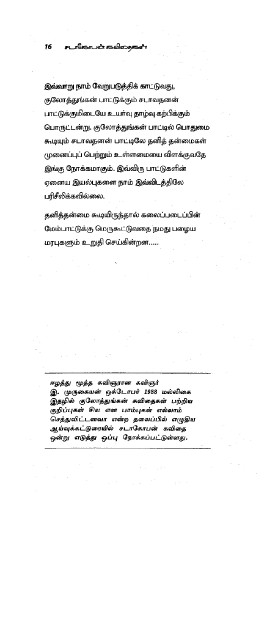 16 சடாகோபன் கவிதைகள்
இவ்வாறு நாம் வேறுபடுத்திக் காட்டுவது,
குலோத்துங்கன் பாட்டுக்கும் சடாவதனன்
பாட்டுக்குமிடையே உயர்வு தாழ்வு கற்பிக்கும்
பொருட்டன்று. குலோத்துங்கள் பாட்டில் பொதுமை
கூடியும் சடாவதனன் பாட்டிலே தனித் தன்மைகள்
முனைப்புப் பெற்றும் உள்ளமையை விளக்குவதே
இங்கு நோக்கமாகும். இவ்விரு பாட்டுகளின்
ஏனைய இயல்புகளை நாம் இவ்விடத்திலே
பரிசீலிக்கவில்லை.
தனித்தன்மை கூடியிருந்தால் கலைப்படைப்பின்
மேம்பாட்டுக்கு மெருகூட்டுவதை நமது பழைய
மரபுகளும் உறுதி செய்கின்றன.....
ஈழத்து மூத்த கவிஞரான கவிஞர்
இ. முருகையன் ஒக்டோபர் 1988 மல்லிகை
இதழில் குலோத்துங்கன் கவிதைகள் பற்றிய
குறிப்புகள் சில என பாம்புகள் எல்லாம்
செத்துவிட்டனவா என்ற தலைப்பில் எழுதிய
ஆய்வுக்கட்டுரையில் சடாகோபன் கவிதை
ஒன்று எடுத்து ஒப்பு நோக்கப்பட்டுள்ளது.